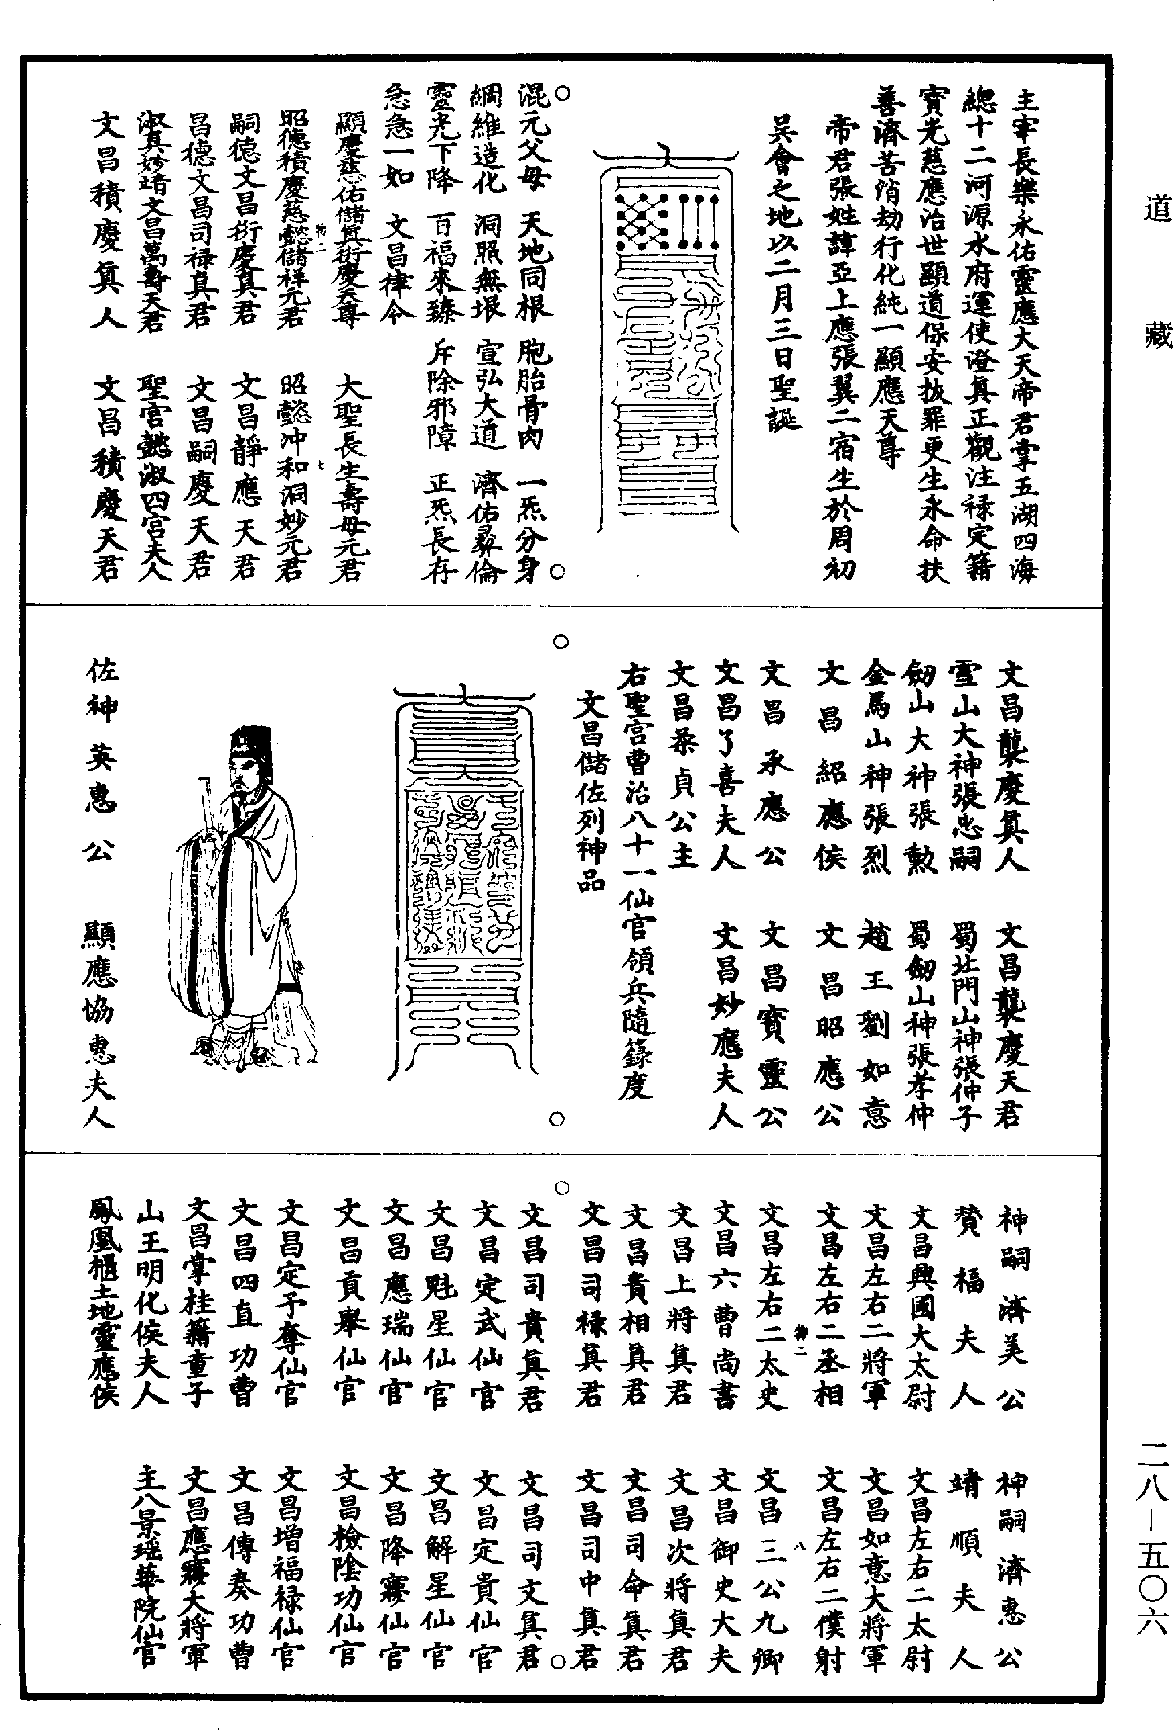 道藏
主宰長樂永佑靈應大天帝君掌五湖四海
總十二河源水府運使證真正觀注祿定籍
寶光慈應治世顯道保安拔罪更生永命扶
善濟苦消劫行化純一顯應天尊
帝君張姓諱亞上應張翼二宿生於周初
吳會之地以二月三日聖誕
混元父母　天地同根　胞胎骨肉　一炁分身
綱維造化　洞照無垠　宣弘大道　濟佑彝倫
靈光下降　百福來臻　斥除邪障　正炁長存
急急一如　文昌律令
顯慶慈佑儲真衍慶天尊　大聖長生壽母元君
昭德積慶慈懿儲祥元君　昭懿冲和洞妙元君
嗣德文昌衍慶真君　文昌靜應天君
昌德文昌司祿真君　文昌嗣慶天君
淑真妙靖文昌萬壽天君　聖宮懿淑四宮夫人
文昌積慶真人　文昌積慶天君
文昌襲慶真人　文昌襲慶天君
雪山大神張忠嗣　蜀北門山神張仲子
劒山大神張勲　蜀劒山神張孝仲
金馬山神張烈　趙王劉如意
文昌紹應侯　文昌昭應公
文昌承應公　文昌寶靈公
文昌了喜夫人　文昌妙應夫人
文昌柔貞公主
右聖宮曹治八十一仙官領兵隨籙度
文昌儲佐列神品
佐神英惠公　顯應協惠夫人
神嗣濟美公　神嗣濟惠公
贊福夫人　靖順夫人
文昌興國大太尉　文昌左右二太尉
文昌左右二將軍　文昌如意大將軍
文昌左右二丞相　文昌左右二僕射
文昌左右二太史　文昌三公九卿
文昌六曹尚書　文昌御史大夫
文昌上將真君　文昌次將真君
文昌貴相真君　文昌司命真君
文昌司祿真君　文昌司中真君
文昌司貴真君　文昌司文真君
文昌定武仙官　文昌定貴仙官
文昌魁星仙官　文昌解星仙官
文昌應瑞仙官　文昌降靈仙官
文昌貢舉仙官　文昌檢陰功仙官
文昌定予奪仙官　文昌增福祿仙官
文昌四直功曹　文昌傳奏功曹
文昌掌桂籍童子　文昌應靈大將軍
山王明化侯夫人　主八景瑤華院仙官
鳳凰櫃土地靈應侯
二八—五〇六